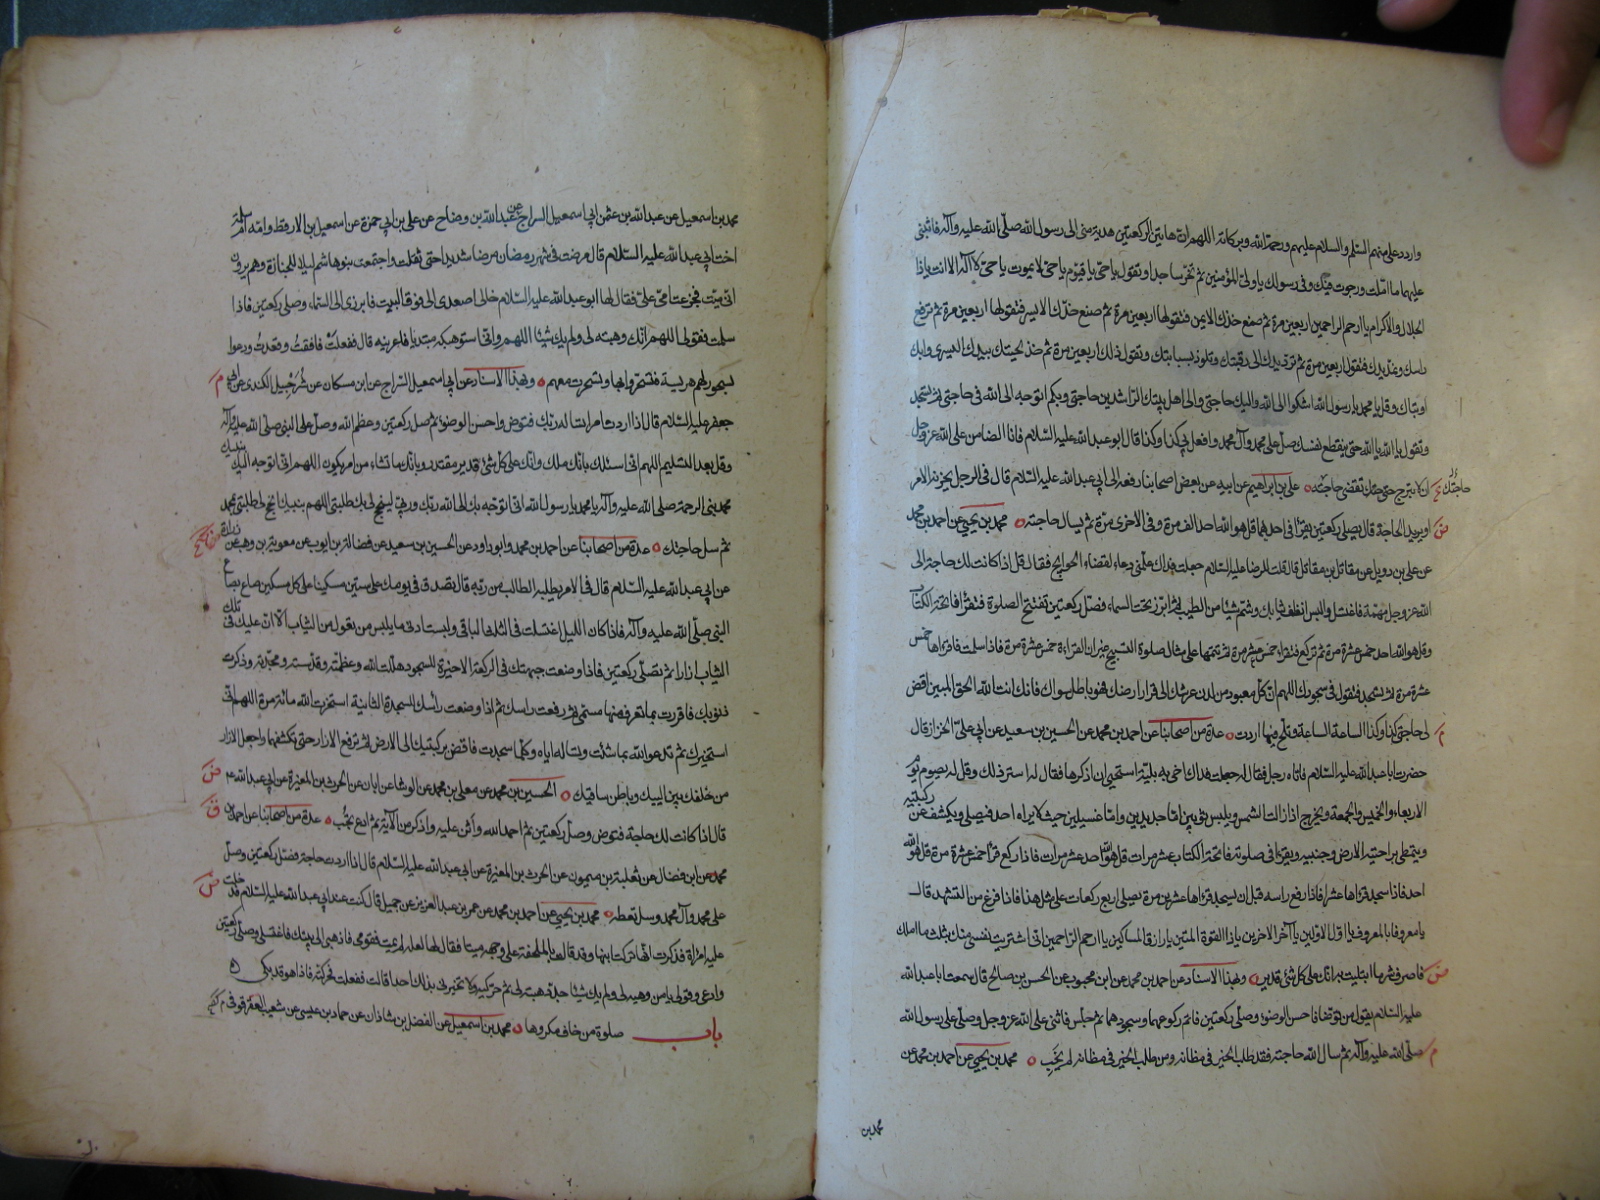 واردد على منهم السلم والسلام عليهم ورحمة الله وبركاته اللهم ان هاتين الركعتين هدية منى الى رسول الله صلّى الله عليه وآله فاثبنى
عليهما ما امّلت ورجوت فيك وفى رسولك ياولىّ المؤمنين ثم تخرّ ساجدا وتقول ياحىّ ياقيّوم ياحىّ لايموت ياحىّ لااله الا انت ياذا
الجلال والاكرام ياارحم الراحمين اربعين مرة ثم ضع خدّك الايمن فتقولها اربعين مرة ثم ضع خدّك الايسر فتقولها اربعين مرة ثم ترفع
راسك وتمدّ يدك فتقول اربعين مرة ثم تردّ يدك الى رقبتك وتلوذ بسبابتك وتقول ذلك اربعين مرة ثم خذ لحيتك بيدك اليسرى وابك
اوتباك وقل يا محمد يا رسول الله اشكوا الى الله واليك حاجتى والى اهل بيتك الراشدين حاجتى وبكم اتوجه الى الله فى حاجتى ثم تسجد
وتقول ياالله ياالله حتى ينقطع نفسك صلّ على محمد وآل محمد وافعل بى كذا وكذا قال ابو عبد الله عليه السّلام فانا الضامن على الله عزوجل
ان لا يبرح حتى تقضى حاجته ٥ على بن ابراهيم عن ابيه عن بعض اصحابنا رفعه الى ابى عبد الله عليه السلام قال فى الرجل يحزنه الامر
حاجتك
اويريد الحاجة قال يصلى ركعتين يقرأ فى احديهما قل هو الله احد الف مرة وفى الاخرى مرّة ثم يسال حاجته ٥ محمد بن يحيى عن احمد بن محمد
عن على بن دويل عن مقاتل بن مقاتل قال قلت للرضا عليه السّلام جعلت فداك علّمنى دعاء لقضاء الحوايج فقال قل اذا كانت لك حاجة الى
الله عزوجل مهمّة فاغتسل والبس انظف ثيابك وشمّ شيئا من الطيب ثم ابرز تحت السماء فصلّ ركعتين تفتتح الصلوة فتقرأ فاتحة الكتاب
وقل هو الله احد خمس عشرة مرة ثم تركع فتقرأ خمس عشرة مرة ثم تتمها على مثال صلوة التسبيح غير ان القراءة خمس عشرة مرة فاذا سلمت فاقرأها خمس
عشرة مرة ثم تسجد فتقول فى سجودك اللهم انّ كل معبود من لدن عرشك الى قرار ارضك فهو باطل سواك فانك انت الله الحق المبين اقض
لى حاجتى كذا وكذا الساعة الساعة وتلحّ فيها اردت ٥ عدة من اصحابنا عن احمد بن محمد عن الحسين بن سعيد عن ابى علىّ الخزاز قال
حضرت ابا عبد الله عليه السّلام فاتاه رجل فقال له جعلت فداك اخى به بليّة استحيى ان اذكرها فقال له استر ذلك وقل له يصوم يوم
الاربعاء والخميس والجمعة ويخرج اذا زالت الشمس ويلبس ثوبين اما جديدين واما غسيلين حيث لايراه احد فيصلى ويكشف عن ركبتيه
ويتمطى براحتيه الارض وجنبيه ويقرأ فى صلوته فاتحة الكتاب عشر مرات وقل هو الله احد عشر مرات فاذا ركع قرأ خمس عشرة مرة قل هو الله
احد فاذا سجد قرأها عشرا فاذا رفع راسه قبل ان يسجد قرأها عشرين مرة يصلى اربع ركعات على مثل هذا فاذا فرغ من التشهد قال
يا معروفا بالمعروف يا اول الاولين يا آخر الاخرين ياذا القوة المتين يا رازق المساكين ياارحم الراحمين انى اشتريت نفسى منك بثلث ما املك
فاصرف شر ما ابتليت به انك على كل شئ قدير ٥ وبهذا الاسناد عن احمد بن محمد عن ابن محبوب عن الحسن بن صالح قال سمعت ابا عبد الله
عليه السّلام يقول من توضا فاحسن الوضوء وصلّى ركعتين فاتم ركوعهما وسجودهما ثم جلس فاثنى على الله عزوجل وصلّى على رسول الله
صلّى الله عليه وآله ثم سال الله حاجته فقد طلب الخير فى مظانه ومن طلب الخير فى مظانه لم يخب ٥ محمد بن يحيى عن احمد بن محمد عن
محمد بن
محمد بن اسمعيل عن عبد الله بن عثمن ابى اسمعيل السراج عن عبد الله بن وضاح عن على بن ابى حمزة عن اسمعيل بن الارقط وامّه ام سلمة
اخت ابى عبد الله عليه السّلام قال مرضت فى شهر رمضان مرضا شديدا حتى ثقلت واجتمعت بنوهاشم ليلا للجنازة وهم يرون
انى ميّت فجزعت امى علىّ فقال لها ابو عبد الله عليه السّلام خالى اصعدى الى فوق البيت فابرزى الى السّماء وصلى ركعتين فاذا
سلمت فقولى اللهم انّك وهبته لى ولم يك شيئا اللهم وانى استوهبكه مبتديا فاعرنيه قال ففعلت فافقت وقعدت ودعوا
بسحور لهم هريسة فتسحّروا بها وتسحرت معهم ٥ وبهذا الاسناد عن ابى اسمعيل السّراج عن ابن مسكان عن شرحبيل الكندى عن ابى
جعفر عليه السّلام قال اذا اردت امرا تساله ربّك فتوضّ واحسن الوضوء ثم صل ركعتين وعظم الله وصل على النبى صلّى الله عليه وآله
وقل بعد التسليم اللهم انى اسئلك بانّك ملك وانّك على كل شئ قدير مقتدر وبانك ما تشاء من امر يكون اللهم انى اتوجه اليك بنبيك
محمد نبى الرحمة صلى الله عليه وآله يا محمد يا رسول الله انى اتوجه بك الى الله ربّك وربى لينجح لى بك طلبتى اللهم بنبيك انجح لى طلبتى بمحمد
ثم سل حاجتك ٥ عدة من اصحابنا عن احمد بن محمد وابو داود عن الحسين بن سعيد عن فضالة بن ايوب عن معوية بن وهب عن زرارة
عن ابى عبد الله عليه السّلام قال فى الامر يطلبه الطالب من ربّه قال تصدق فى يومك على ستين مسكينا على كل مسكين صاع بصاع
النبى صلّى الله عليه وآله فاذا كان الليل اغتسلت فى الثلث الباقى ولبست ادنى ما يلبس من تعول من الثياب الا ان عليك فى تلك
الثياب ازارا ثم تصلّى ركعتين فاذا وضعت جبهتك فى الركعة الاخيرة للسجود هلّلت الله وعظّمته وقدّسته ومجّدته وذكرت
ذنوبك فاقررت بما تعرف منها مسمّى ثم رفعت راسك ثم اذا وضعت رأسك للسجدة الثانية استخرت الله مائة مرة اللهم انى
استخيرك ثم تدعو الله بما شئت وتساله اياه وكلّما سجدت فافض بركبتيك الى الارض ثم ترفع الازار حتى تكشفهما واجعل الازار
من خلفك بين اليتيك وباطن ساقيك ٥ الحسين بن محمد عن معلى بن محمد عن الوشا عن ابان عن الحرث بن المغيرة عن ابى عبد الله عم
قال اذا كانت لك حاجة فتوض وصلّ ركعتين ثم احمد الله واثن عليه واذكر من آلايه ثم ادع تجب ٥ عدة من اصحابنا عن احمد بن
محمد عن ابن فضال عن ثعلبة بن ميمون عن الحرث بن المغيرة عن ابى عبد الله عليه السّلام قال اذا اردت حاجة فصل ركعتين وصل
على محمد وآل محمد وسل تعطه ٥ محمد بن يحيى عن احمد بن محمد عن عمر بن عبد العزيز عن جميل قال كنت عند ابى عبد الله عليه السّلام فدخلت
عليه امرأة فذكرت انّها تركت ابنها وقد قالت بالملحفة على وجهه ميتا فقال لها لعله لم يمت فقومى فاذهبى الى بيتك فاغتسلى وصلّى ركعتين
وادعى وقولى يا من وهبه لى ولم يك شيئا جدد هبته لى ثم حرّكيه ولا تخبرى بذلك احدا قالت ففعلت فحركته فاذا هو قد بكى ٥
باب صلوة من خاف مكروها ٥ محمد بن اسمعيل عن الفضل بن شاذان عن حماد بن عيسى عن شعيب العقرقوفى